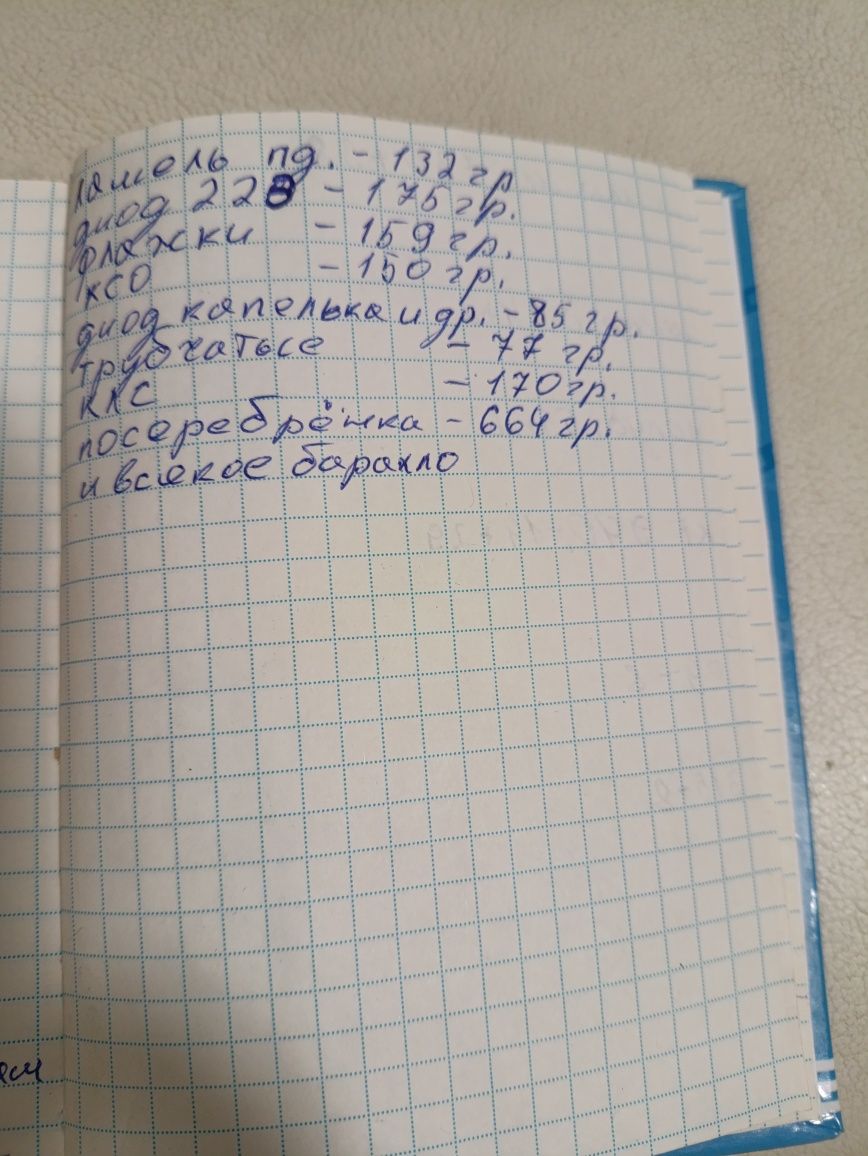 ламель пд. - 132 гр
диод 228 - 175 гр.
флажки - 159 гр.
КСО - 150 гр.
диод капелька и др. - 85 гр.
трубчатысе - 77 гр.
КЛС - 170 гр.
посеребрёнка - 664 гр.
и всякое барахло